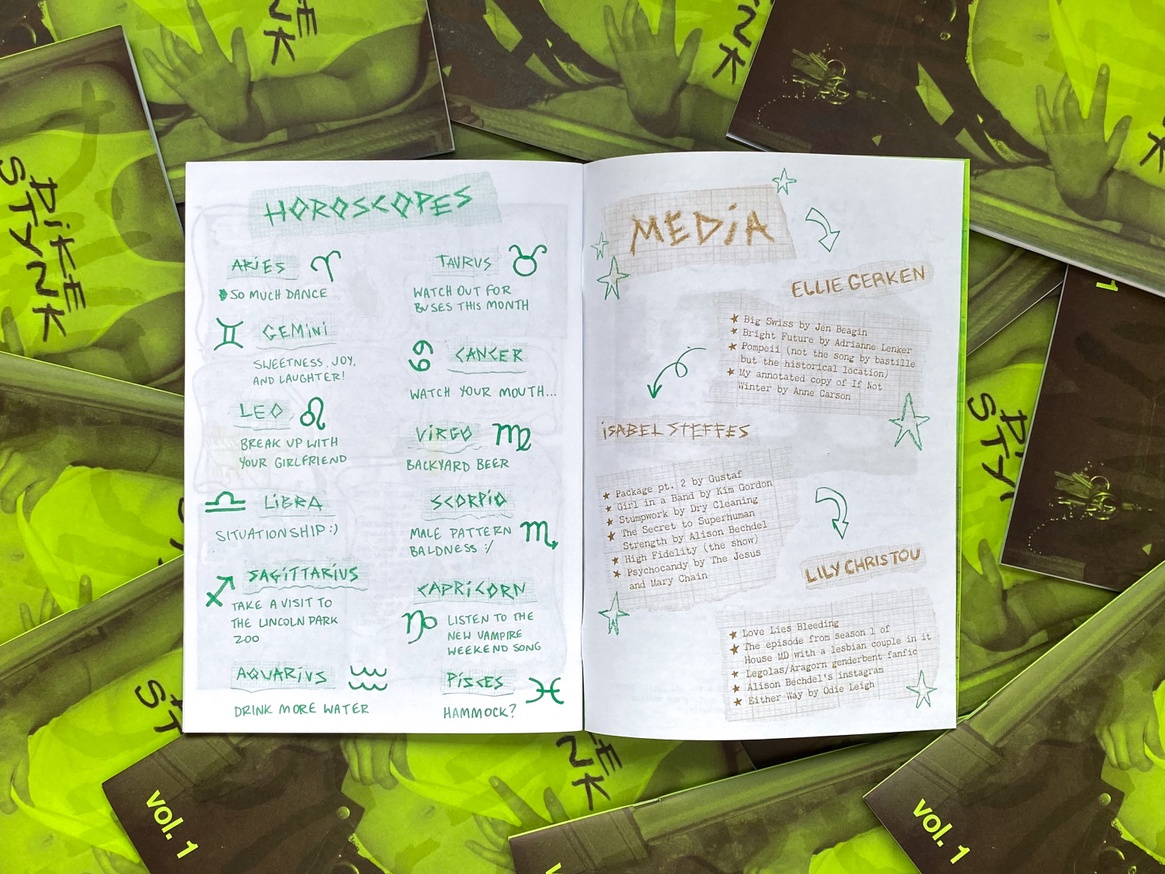 HOROSCOPES
ARIES
SO MUCH DANCE
TAURUS
WATCH OUT FOR
BUSES THIS MONTH
GEMINI
SWEETNESS, JOY,
AND LAUGHTER!
CANCER
WATCH YOUR MOUTH...
LEO
BREAK UP WITH
YOUR GIRLFRIEND
VIRGO
BACKYARD BEER
LIBRA
SITUATIONSHIP :)
SCORPIO
MALE PATTERN
BALDNESS :/
SAGITTARIUS
TAKE A VISIT TO
THE LINCOLN PARK
ZOO
CAPRICORN
LISTEN TO THE
NEW VAMPIRE
WEEKEND SONG
AQUARIUS
DRINK MORE WATER
PISCES
HAMMOCK?
MEDIA
ELLIE GERKEN
★ Big Swiss by Jen Beagin
★ Bright Future by Adrianne Lenker
★ Pompeii (not the song by bastille
but the historical location)
★ My annotated copy of If Not
Winter by Anne Carson
ISABEL STEFFES
★ Package pt. 2 by Gustaf
★ Girl in a Band by Kim Gordon
★ Stumpwork by Dry Cleaning
★ The Secret to Superhuman
Strength by Alison Bechdel
★ High Fidelity (the show)
★ Psychocandy by The Jesus
and Mary Chain
LILY CHRISTOU
★ Love Lies Bleeding
★ The episode from season 1 of
House MD with a lesbian couple in it
★ Legolas/Aragorn genderbent fanfic
★ Alison Bechdel's instagram
★ Either Way by Odie Leigh
DIKE
STYNK
vol. 1
vol. 1